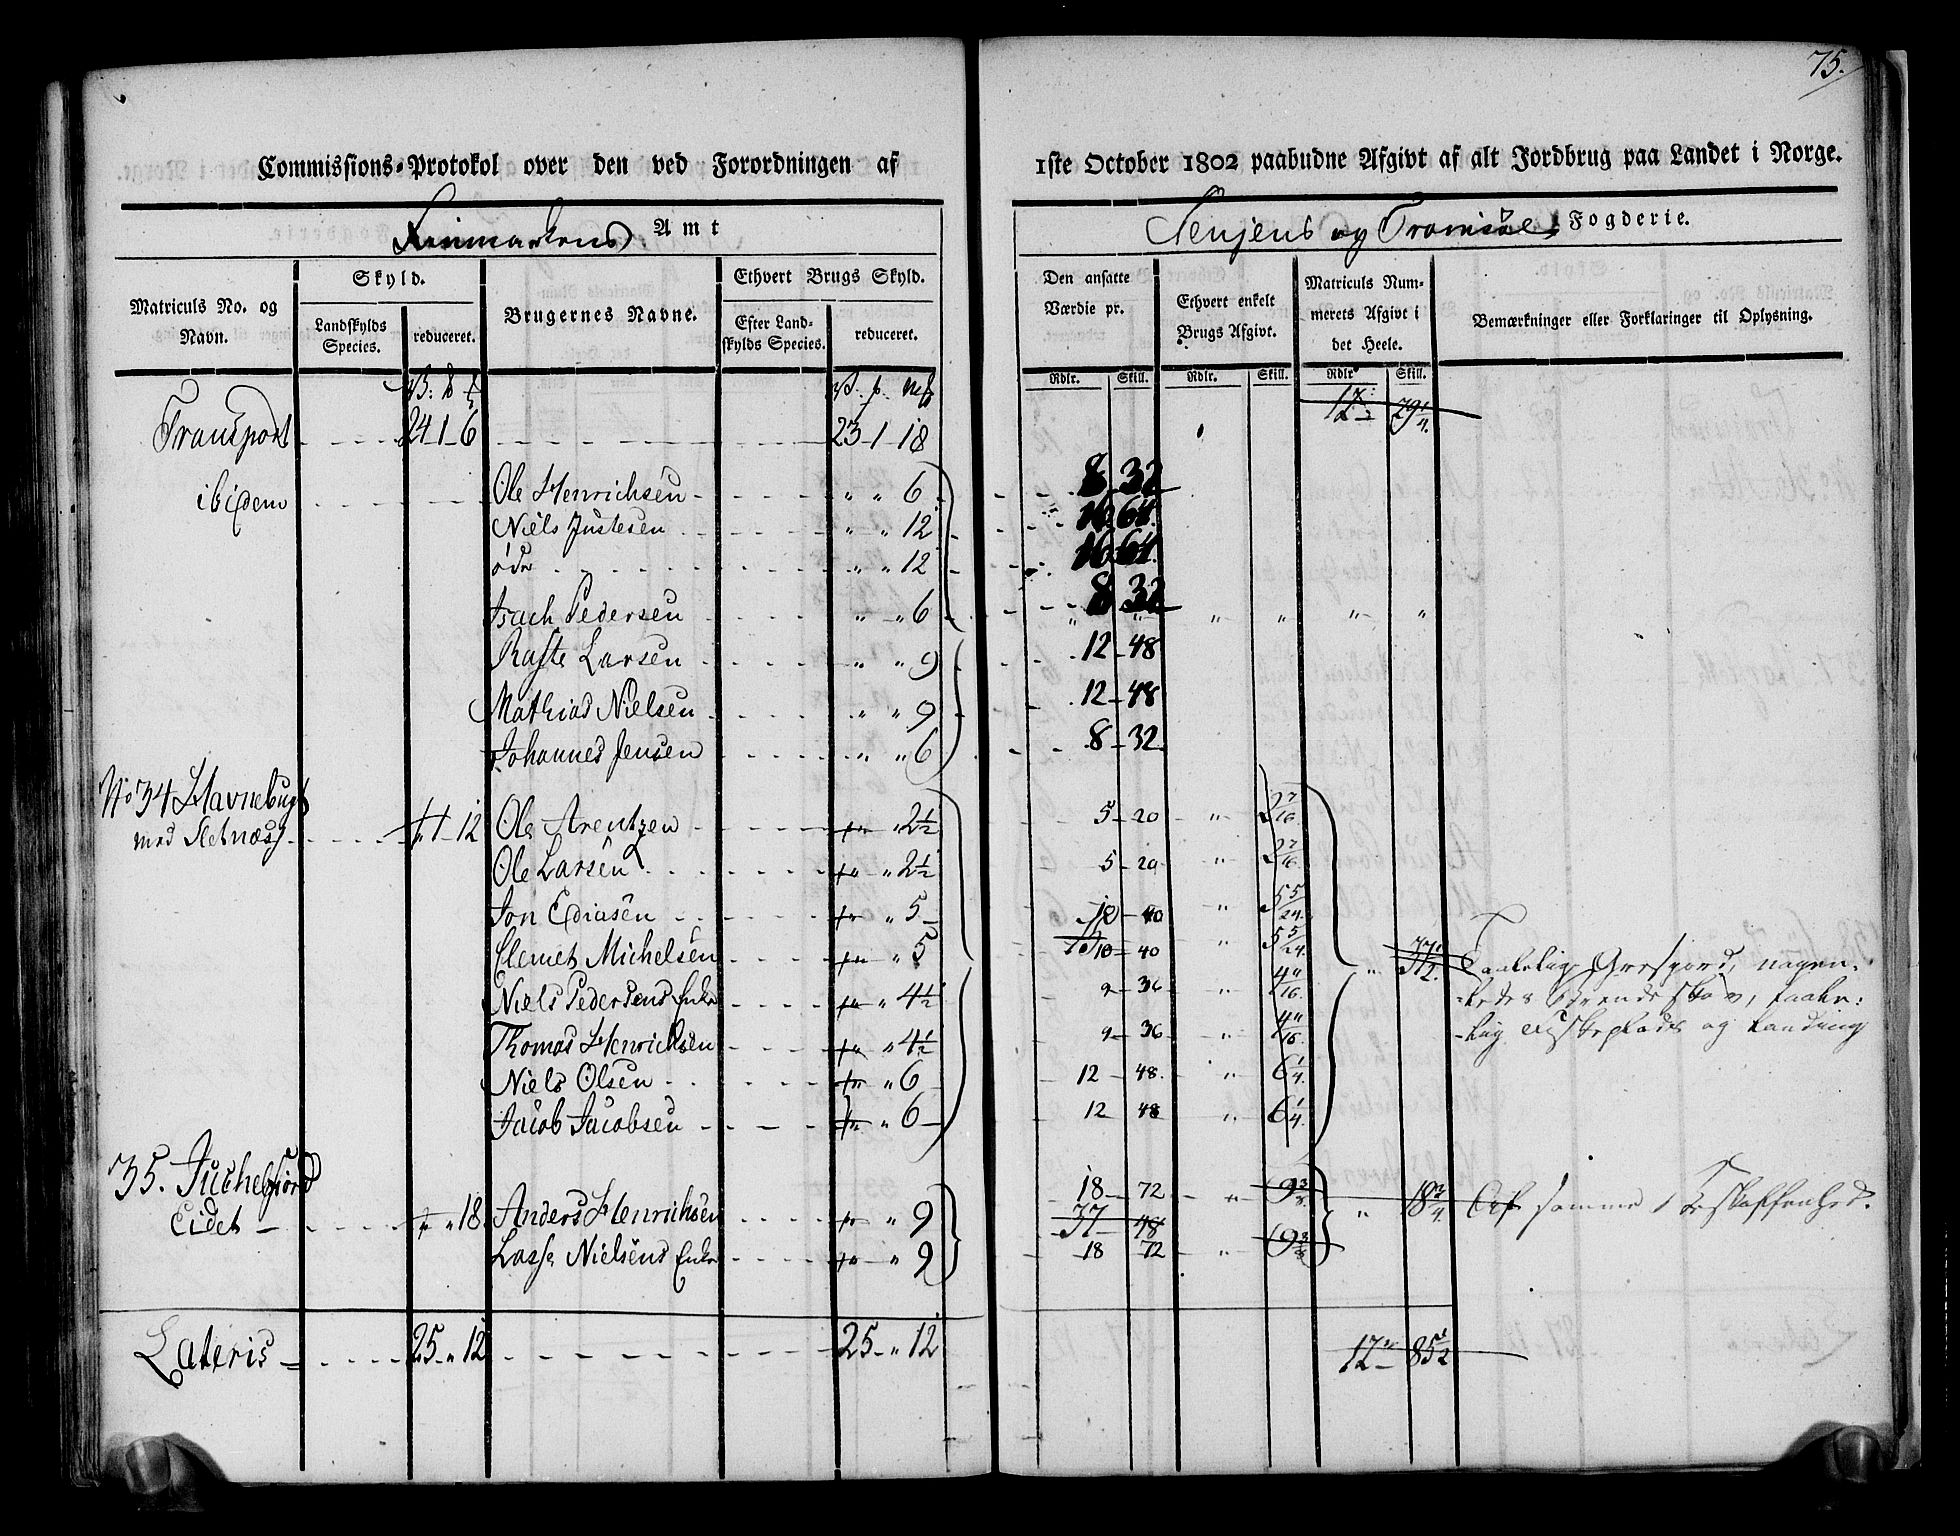 75.
Commissions-Protokol over den ved Forordningen af 1ste October 1802 paabudne Afgivt af alt Jordbrug paa Landet i Norge.
Finmarkens Amt Senjens og Tromsøe Fogderie.
Matriculs No. og Navn. Skyld. Landskylds Species. reduceret. Brugernes Navne. Ethvert Brugs Skyld. Efter Landskylds Species. reduceret. Den ansatte Værdie pr. Ethvert enkelt Brugs Afgivt. Matriculs Nummerets Afgivt i det Heele. Bemærkninger eller Forklaringer til Oplysning.
Rdlr. Skill. Rdlr. Skill. Rdlr. Skill.
Transport 24 1 6 23 1 18 17 79 1/4
ibidem Ole Henrichsen " " 6 8 32
Niels Justesen " " 12 16 64
øde " " 12 16 64
Isach Pedersen " " 6 8 32 " " " "
Raste Larsen " " 9 12 48
Mathias Nielsen " " 9 12 48
Johannes Jensen " " 6 8 32
No 34 Havnebugt
med Sletnæs 1 12 Ole Arentzen " 2½ 5 20 "
Ole Larsen " 2½ 5 20 "
Jon Ediasen " 5 10 40 " 5 5/24
Clemet Michelsen " 5 10 40 " 5 5/24
Niels Pedersens Enke " 4½ 9 36 " 4 11/16
Thomas Henrichsen " 4½ 9 36 " 4 11/16
Niels Olsen " 6 12 48 " 6 1/4
Jacob Jacobsen " 6 12 48 " 6 1/4
" 37½ Taalelig Græsgord, nogen-
ledes Brændeskov, taale-
lig Fiskeplads og Landing
35. Juchelfiord
Eidet " 18 Anders Henrichsen " 9 18 72 " 9 3/8 " 18 3/4 Af samme Beskaffenhed.
37 48
Lasse Nielsens Enke " 9 18 72 " 9 3/8
Lateris 25 " 12 25 " 12 17 85½